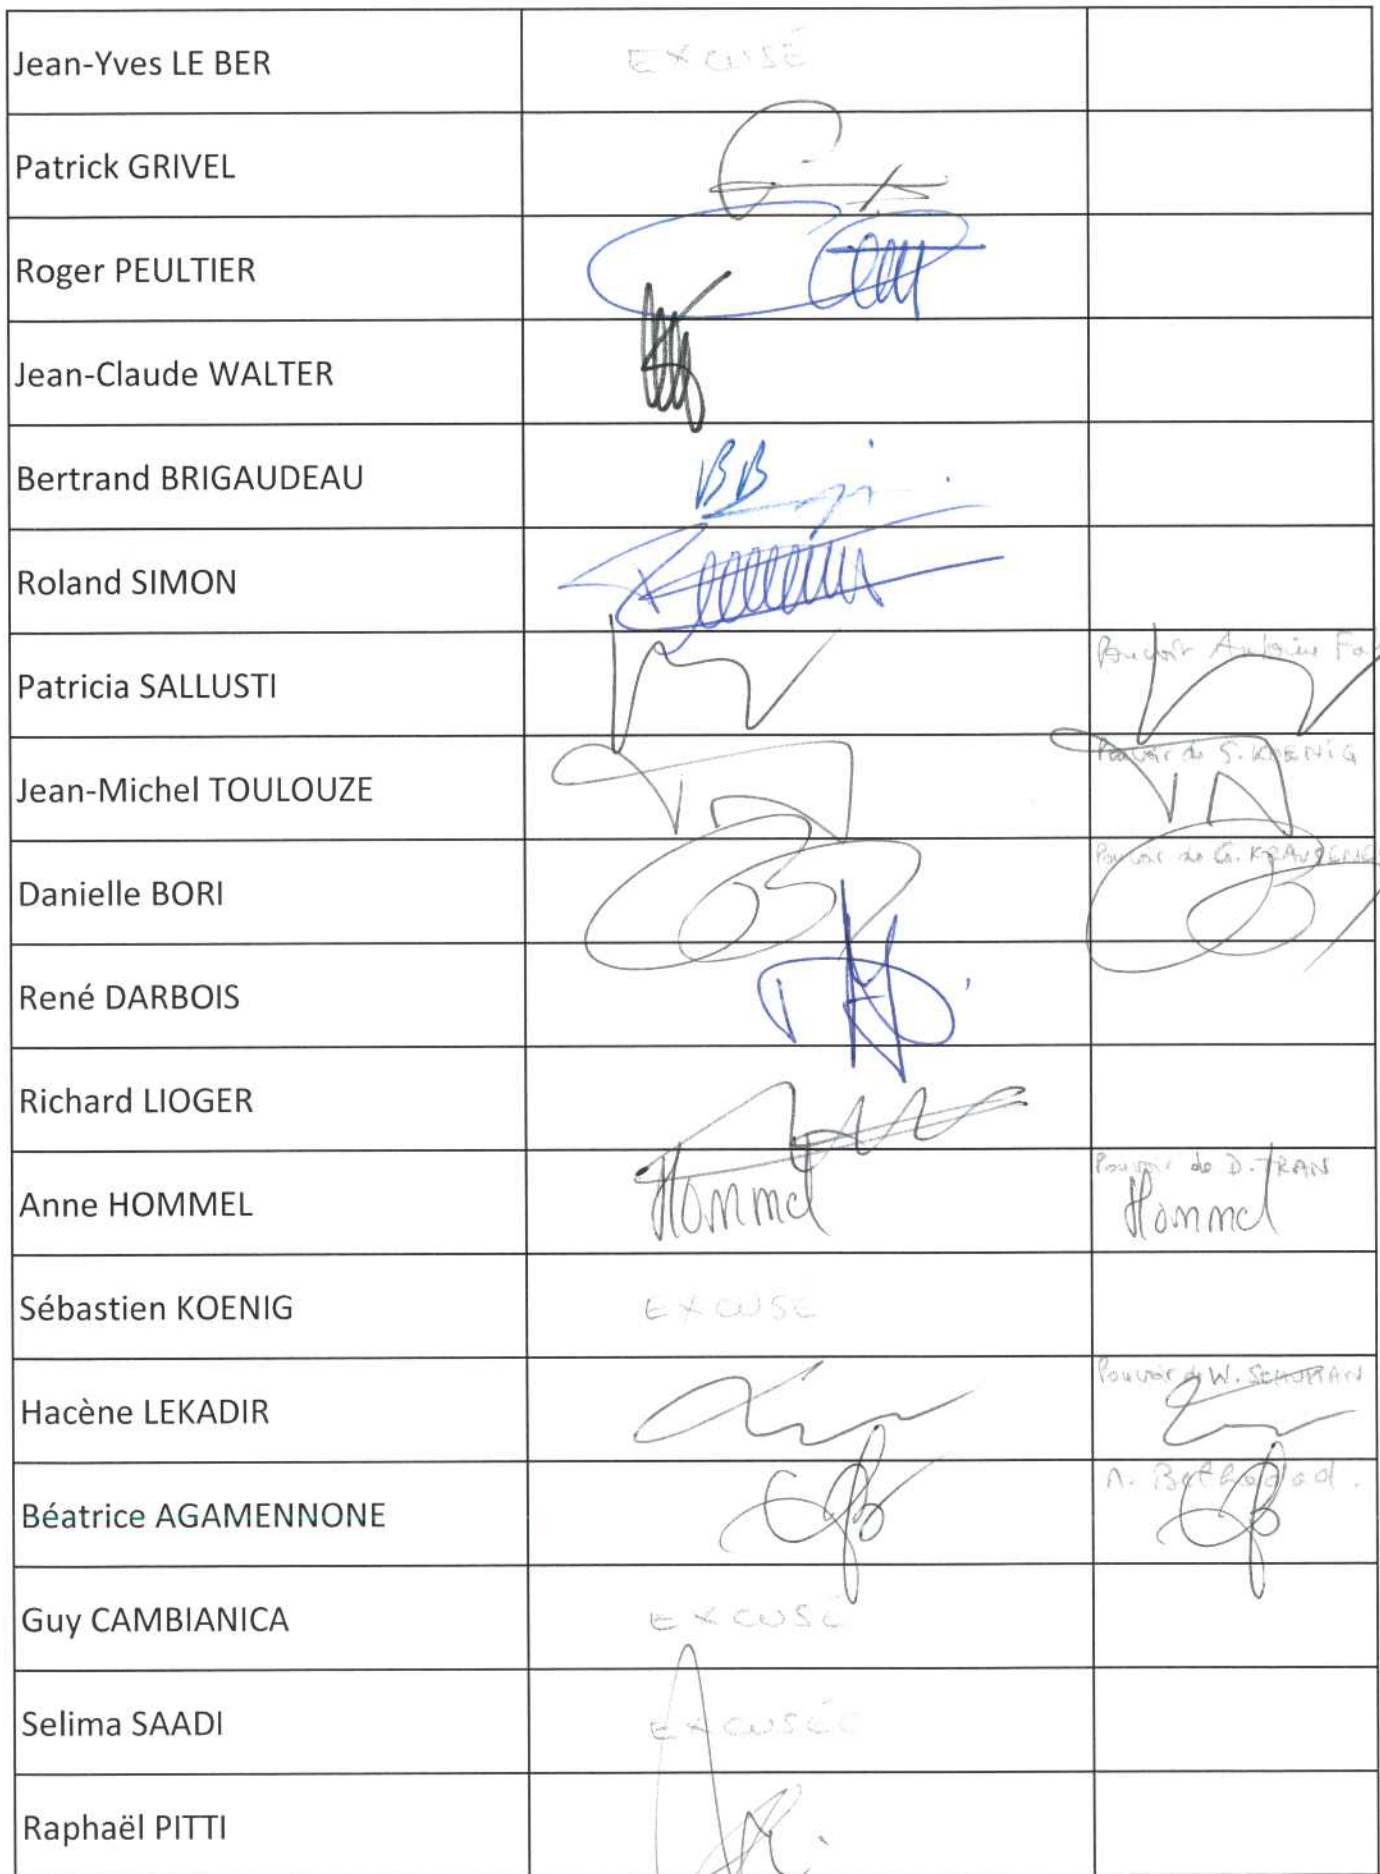 Jean-Yves LE BER EXCUSÉ
Patrick GRIVEL
Roger PEULTIER
Jean-Claude WALTER
Bertrand BRIGAUDEAU BB
Roland SIMON
Patricia SALLUSTI Pouvoir Antoine
Jean-Michel TOULOUZE Pouvoir de S. KOENIG
Danielle BORI Pouvoir de G.
René DARBOIS
Richard LIOGER
Anne HOMMEL Hommel Pouvoir de D. TRAN Hommel
Sébastien KOENIG EXCUSÉ
Hacène LEKADIR Pouvoir de W. SCHUMAN
Béatrice AGAMENNONE
Guy CAMBIANICA EXCUSÉ
Selima SAADI EXCUSÉE
Raphaël PITTI